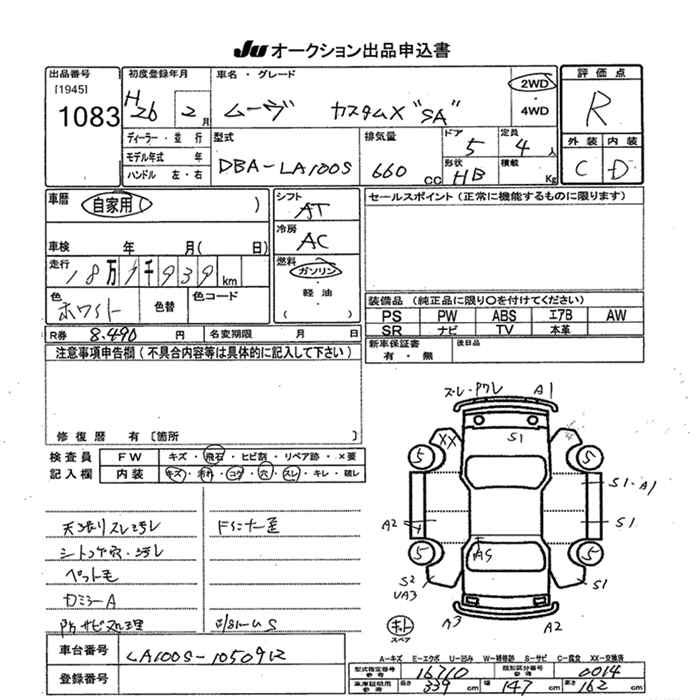 JU オークション出品申込書
出品番号
[1945]
1083
初度登録年月
H26 2月
車名・グレード
ムーヴ カスタムX "SA"
2WD
・
4WD
評価点
R
外装 内装
C D
ディーラー・並行
モデル年式 年
ハンドル 左・右
型式
DBA-LA100S
排気量
660 CC
ドア
5
定員
4人
形状
HB
積載
Kg
車歴
自家用( )
車検 年 月( 日)
走行
18万1千939km
色
ホワイト
色替
色コード
シフト
AT
冷房
AC
燃料
ガソリン
・
軽油
( )
セールスポイント(正常に機能するものに限ります)
装備品(純正品に限り〇を付けてください)
PS PW ABS エアB AW
SR ナビ TV 本革
新車保証書
有・無
後日品
R券 8.490 円 名変期限 月 日
注意事項申告欄(不具合内容等は具体的に記入して下さい)
修復歴 有 〔箇所 〕
検査員
記入欄
FW キズ・飛石・ヒビ割・リペア跡・×要
内装 キズ・汚れ・コゲ・穴・スレ・キレ・破レ
天張りスレ汚レ
シートコゲ穴・汚レ
ペット毛
Dミラー A
防サビ処理
ズレ・ワレ A1
XX
S1
5 5
S1・A1
A2 Y
S1
AS
5 5
S2
UA3
S1
A3 A2
キト
スペア
A-キズ E-エクボ U-凹み W-補修跡 S-サビ C-腐食 XX-交換済
車台番号 LA100S-1050912
登録番号
型式指定番号
参考
16710
類別区分番号
参考
0014
車庫証明用
参考
長さ 339cm 幅 147cm 高さ 162cm